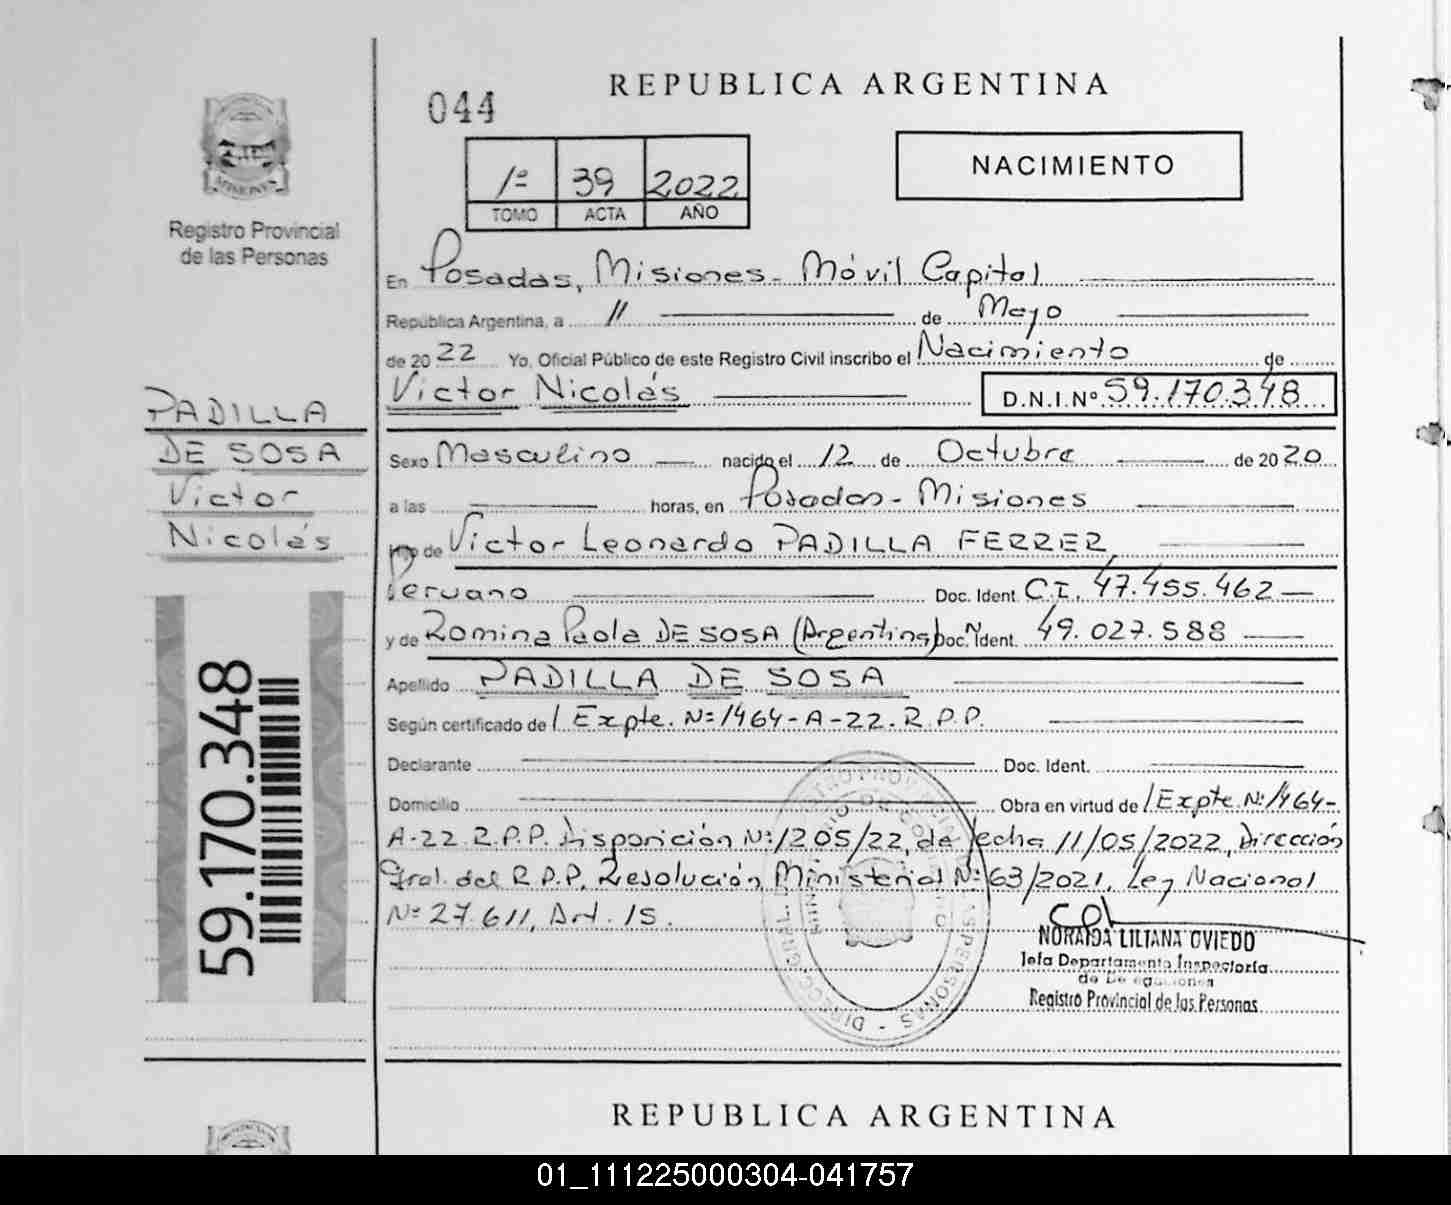 REPUBLICA ARGENTINA
044
NACIMIENTO
1º 39 2022
TOMO ACTA AÑO
MISIONES
Registro Provincial
de las Personas
En Posadas, Misiones - Móvil Capital
República Argentina, a 11 de Mayo
de 2022 Yo, Oficial Público de este Registro Civil inscribo el Nacimiento de
Víctor Nicolás D.N.I. Nº 59.170.348
PADILLA
DE SOSA
Víctor
Nicolás
Sexo Masculino nacido el 12 de Octubre de 2020
a las horas, en Posadas - Misiones
hijo de Víctor Leonardo PADILLA FERRER,
Peruano Doc. Ident. C.I. 47.455.462
y de Romina Paola DE SOSA (Argentina) Doc. Ident. 49.027.588
Apellido PADILLA DE SOSA
Según certificado de Expte. Nº 1464-A-22. R.P.P.
Declarante Doc. Ident.
Domicilio Obra en virtud de Expte. Nº 1464-
A-22 R.P.P. Disposición Nº 1205/22, de fecha 11/05/2022, Dirección
Gral. del R.P.P. Resolución Ministerial Nº 63/2021, Ley Nacional
Nº 27.611, Art. 15.
59.170.348
NORAIDA LILIANA OVIEDO
Jefa Departamento Inspectoría
de Delegaciones
Registro Provincial de las Personas
REPUBLICA ARGENTINA
01_111225000304-041757